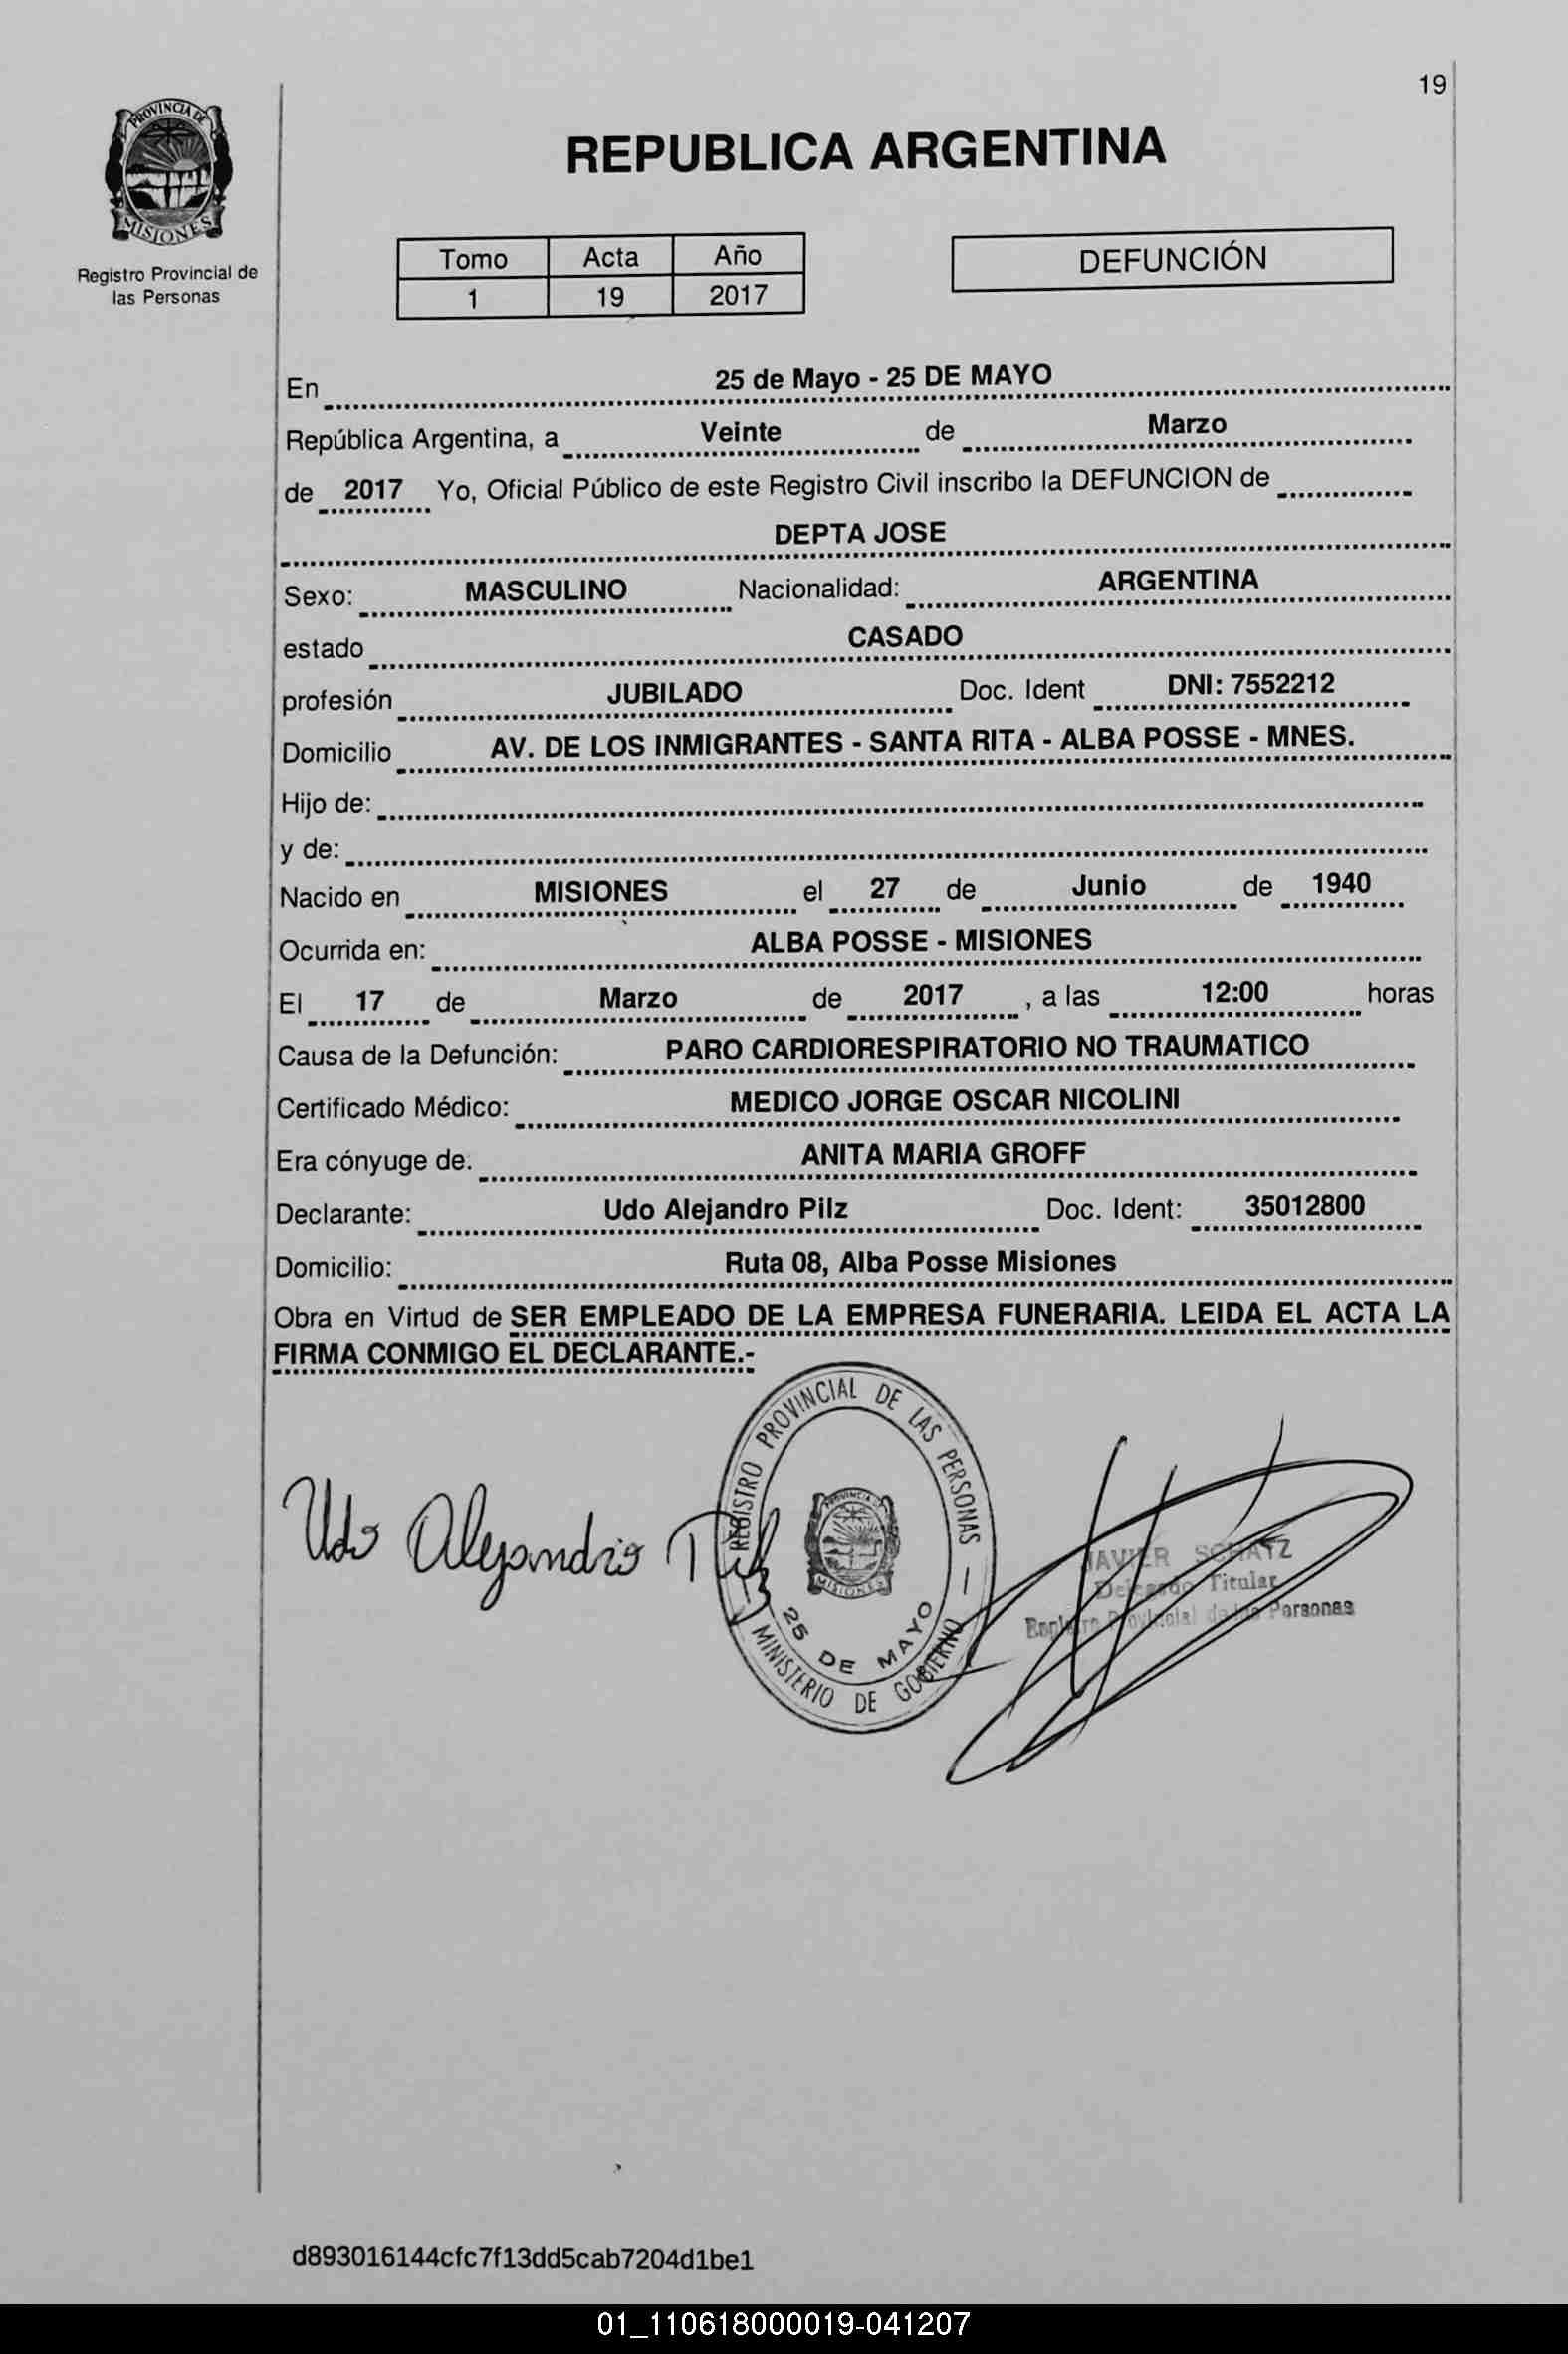 19
PROVINCIA DE
MISIONES
Registro Provincial de
las Personas
REPUBLICA ARGENTINA
Tomo Acta Año
1 19 2017
DEFUNCIÓN
En 25 de Mayo - 25 DE MAYO
República Argentina, a Veinte de Marzo
de 2017 Yo, Oficial Público de este Registro Civil inscribo la DEFUNCION de
DEPTA JOSE
Sexo: MASCULINO Nacionalidad: ARGENTINA
estado CASADO
profesión JUBILADO Doc. Ident DNI: 7552212
Domicilio AV. DE LOS INMIGRANTES - SANTA RITA - ALBA POSSE - MNES.
Hijo de:
y de:
Nacido en MISIONES el 27 de Junio de 1940
Ocurrida en: ALBA POSSE - MISIONES
El 17 de Marzo de 2017 , a las 12:00 horas
Causa de la Defunción: PARO CARDIORESPIRATORIO NO TRAUMATICO
Certificado Médico: MEDICO JORGE OSCAR NICOLINI
Era cónyuge de: ANITA MARIA GROFF
Declarante: Udo Alejandro Pilz Doc. Ident: 35012800
Domicilio: Ruta 08, Alba Posse Misiones
Obra en Virtud de SER EMPLEADO DE LA EMPRESA FUNERARIA. LEIDA EL ACTA LA
FIRMA CONMIGO EL DECLARANTE.-
Udo Alejandro Pilz
REGISTRO PROVINCIAL DE LAS PERSONAS
PROVINCIA DE
MISIONES
25 DE MAYO
MINISTERIO DE GOBIERNO
JAVIER SCHATZ
Delegado Titular
Registro Provincial de las Personas
d893016144cfc7f13dd5cab7204d1be1
01_110618000019-041207